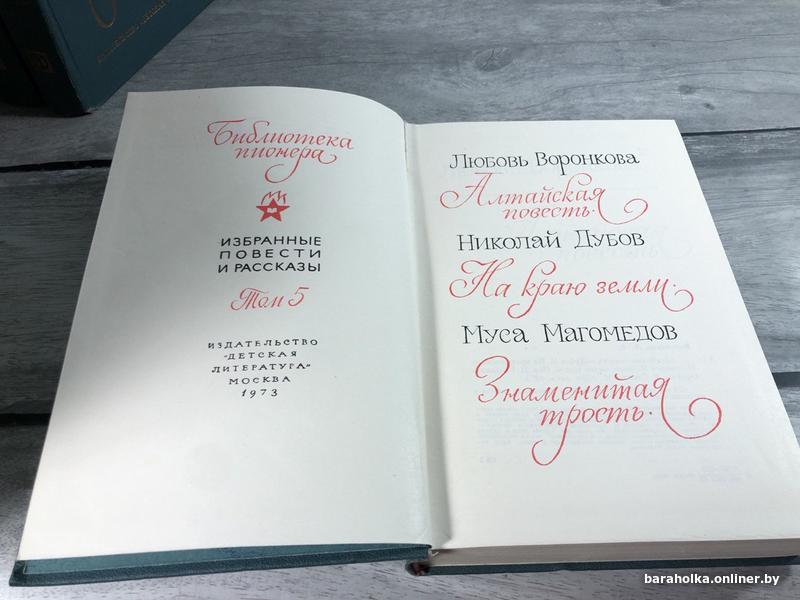 Библиотека
пионера
ИЗБРАННЫЕ
ПОВЕСТИ
И РАССКАЗЫ
Том 5
ИЗДАТЕЛЬСТВО
"ДЕТСКАЯ
ЛИТЕРАТУРА"
МОСКВА
1973
Любовь Воронкова
Алтайская
повесть.
Николай Дубов
На краю земли.
Муса Магомедов
Знаменитая
трость.
baraholka.onliner.by